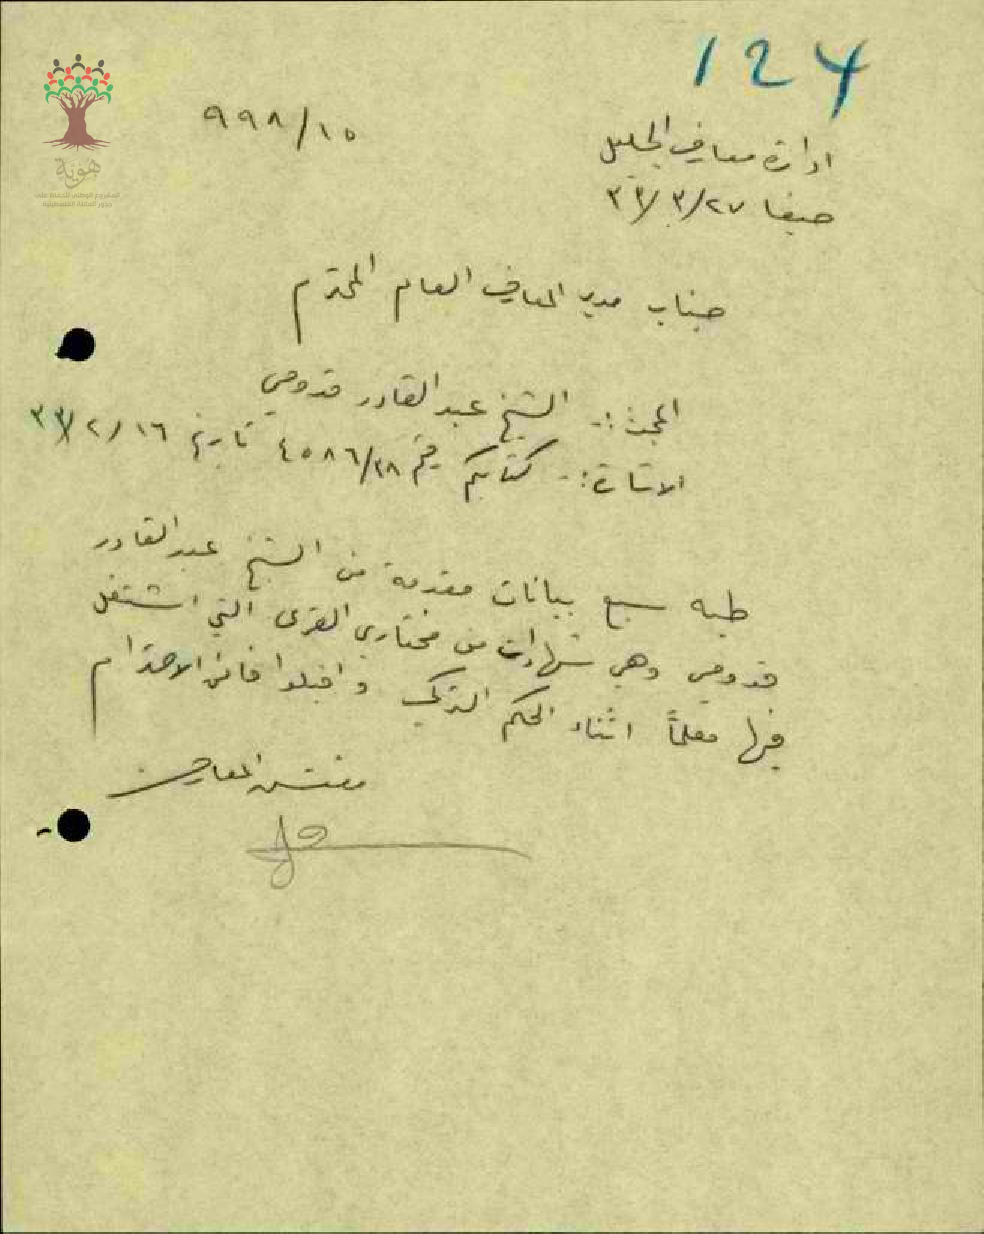 124
ادارة معارف الجليل
٩٩٨/١٥
حيفا ٢٧/٣/٣٣
جناب مدير المعارف العام المحترم
المبحث :- الشيخ عبد القادر قدومي
الاشارة :- كتابكم رقم ٤٥٨٦/٢٨ تاريخ ١٦/٢/٣٣
طيه سبع بيانات مقدمة من الشيخ عبد القادر
قدومي وهي شهادات من مختاري القرى التي اشتغل
فيها معلماً اثناء الحكم التركي واقبلوا فائق الاحترام
مفتش المعارف
هوية